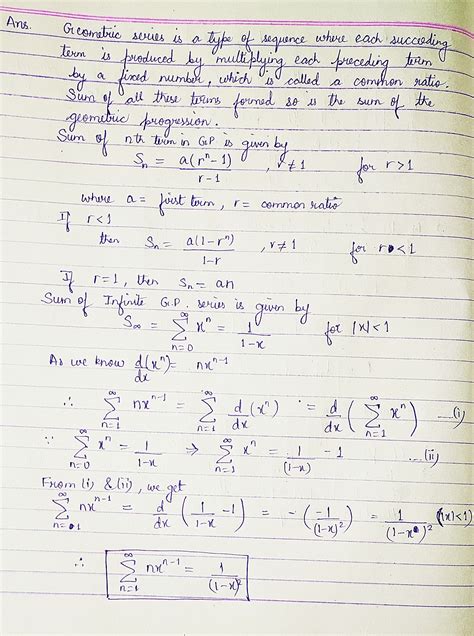 Ans. Geometric series is a type of sequence where each succeeding
term is produced by multiplying each preceding term
by a fixed number, which is called a common ratio.
Sum of all these terms formed so is the sum of the
geometric progression.
Sum of nth term in G.P is given by
Sₙ = a(rⁿ-1)/(r-1) , r≠1 for r>1
where a = first term, r = common ratio
If r<1
then Sₙ = a(1-rⁿ)/(1-r) , r≠1 for r<1
If r=1, then Sₙ = an
Sum of Infinite G.P. series is given by
S∞ = ∑_{n=0}^{∞} xⁿ = 1/(1-x) for |x|<1
As we know d(xⁿ)/dx = nxⁿ⁻¹
∴ ∑_{n=1}^{∞} nxⁿ⁻¹ = ∑_{n=1}^{∞} d/dx (xⁿ) = d/dx (∑_{n=1}^{∞} xⁿ) —(i)
∵ ∑_{n=0}^{∞} xⁿ = 1/(1-x) ⇒ ∑_{n=1}^{∞} xⁿ = 1/(1-x) - 1 ...(ii)
From (i) & (ii), we get
∑_{n=1}^{∞} nxⁿ⁻¹ = d/dx (1/(1-x) - 1) = -(-1/(1-x)²) = 1/(1-x)² (|x|<1)
∴ ∑_{n=1}^{∞} nxⁿ⁻¹ = 1/(1-x)²